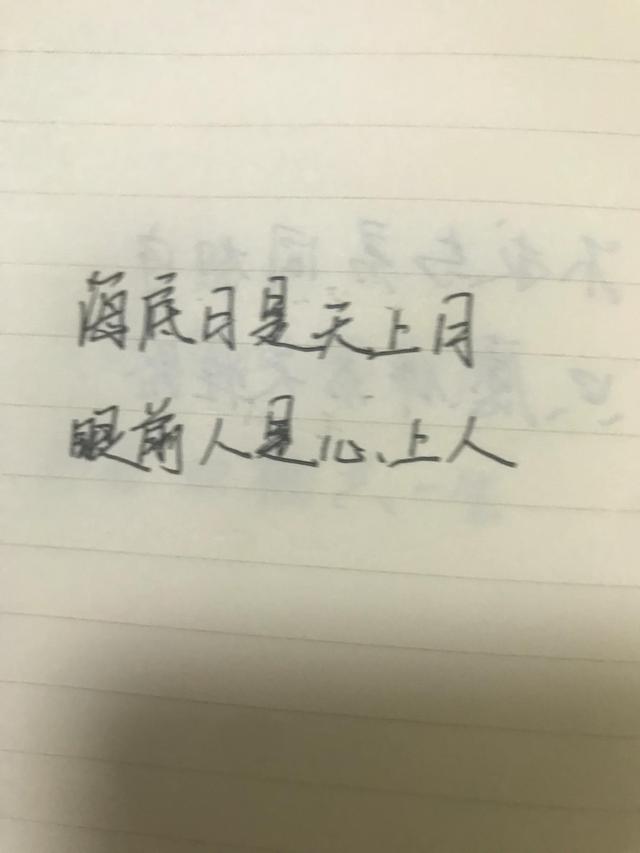 海底日是天上月
眼前人是心上人